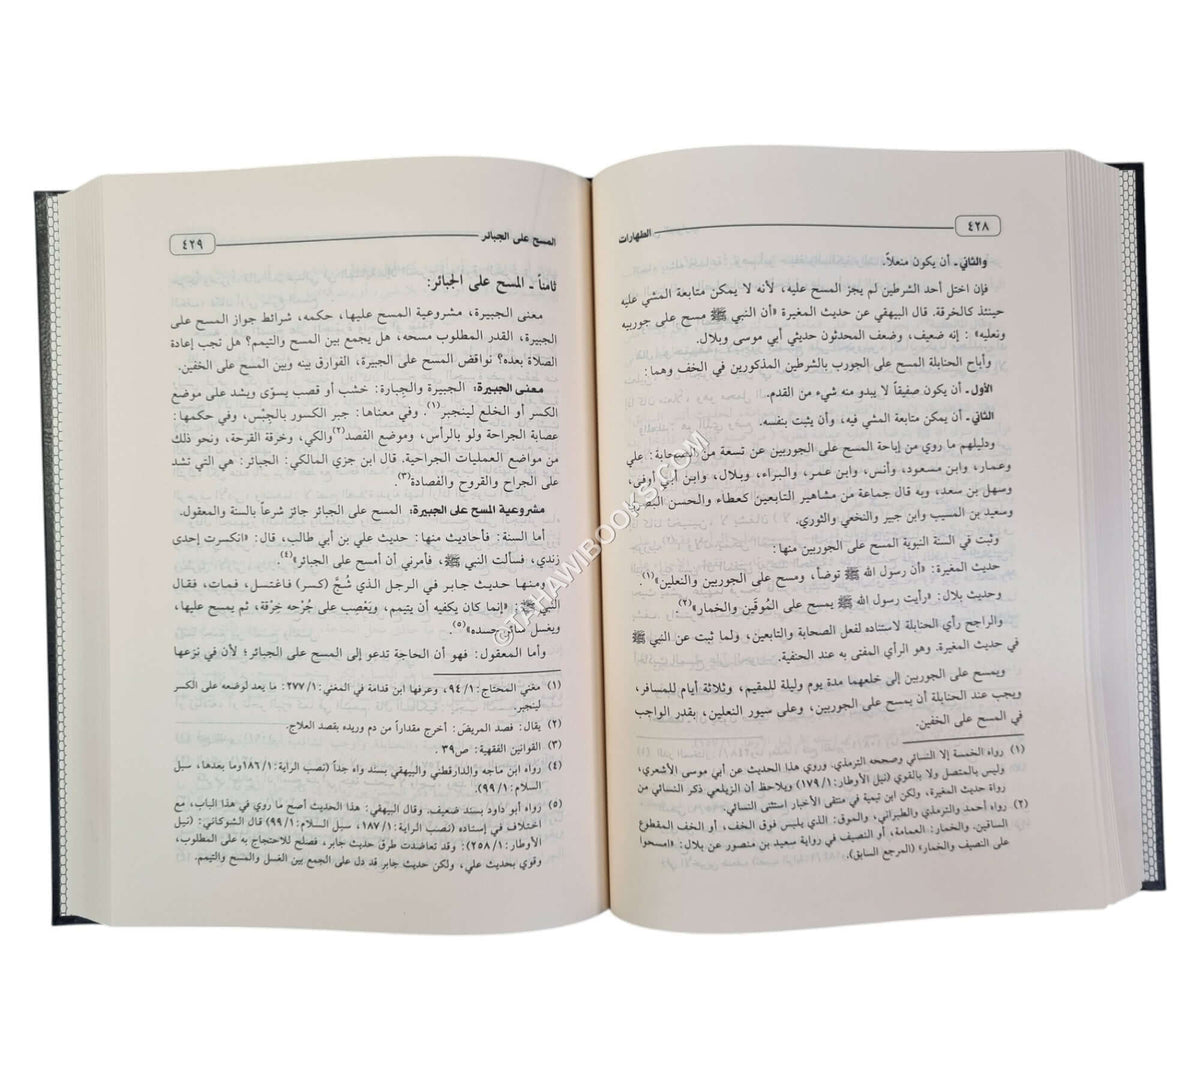 ٤٢٨
الطهارات
والثاني ـ أن يكون منعلاً.
فإن اختل أحد الشرطين لم يجز المسح عليه، لأنه لا يمكن متابعة المشي عليه
حينئذ كالخرقة. قال البيهقي عن حديث المغيرة «أن النبي ﷺ مسح على جوربيه
ونعليه» : إنه ضعيف، وضعف المحدثون حديثي أبي موسى وبلال.
وأباح الحنابلة المسح على الجورب بالشرطين المذكورين في الخف وهما:
الأول ـ أن يكون صفيقاً لا يبدو منه شيء من القدم.
الثاني ـ أن يمكن متابعة المشي فيه، وأن يثبت بنفسه.
ودليلهم ما روي من إباحة المسح على الجوربين عن تسعة من الصحابة: علي
وعمار، وابن مسعود، وأنس، وابن عمر، والبراء، وبلال، وابن أبي أوفى،
وسهل بن سعد، وبه قال جماعة من مشاهير التابعين كعطاء والحسن البصري
وسعيد بن المسيب وابن جبير والنخعي والثوري.
وثبت في السنة النبوية المسح على الجوربين منها:
حديث المغيرة: «أن رسول الله ﷺ توضأ، ومسح على الجوربين والنعلين»(١)
وحديث بلال: «رأيت رسول الله ﷺ يمسح على المُوقَين والخمار»(٢).
والراجح رأي الحنابلة لاستناده لفعل الصحابة والتابعين، ولما ثبت عن النبي ﷺ
في حديث المغيرة. وهو الرأي المفتى به عند الحنفية.
ويمسح على الجوربين إلى خلعهما مدة يوم وليلة للمقيم، وثلاثة أيام للمسافر،
ويجب عند الحنابلة أن يمسح على الجوربين، وعلى سيور النعلين، بقدر الواجب
في المسح على الخفين.
(١) رواه الخمسة إلا النسائي وصححه الترمذي. وروي هذا الحديث عن أبي موسى الأشعري،
وليس بالمتصل ولا بالقوي (نيل الأوطار: ١٧٩/١) ويلاحظ أن الزيلعي ذكر النسائي من
رواة حديث المغيرة، ولكن ابن تيمية في منتقى الأخبار استثنى النسائي.
(٢) رواه أحمد والترمذي والطبراني، والموق: الذي يلبس فوق الخف، أو الخف المقطوع
الساقين. والخمار: العمامة، أو النصيف في رواية سعيد بن منصور عن بلال: «امسحوا
على النصيف والخمار» (المرجع السابق).
المسح على الجبائر
٤٢٩
ثامناً ـ المسح على الجبائر:
معنى الجبيرة، مشروعية المسح عليها، حكمه، شرائط جواز المسح على
الجبيرة، القدر المطلوب مسحه، هل يجمع بين المسح والتيمم؟ هل تجب إعادة
الصلاة بعده؟ نواقض المسح على الجبيرة، الفوارق بينه وبين المسح على الخفين.
معنى الجبيرة: الجبيرة والجِبارة: خشب أو قصب يسوّى ويشد على موضع
الكسر أو الخلع لينجبر(١). وفي معناها: جبر الكسور بالجِبْس، وفي حكمها:
عصابة الجراحة ولو بالرأس، وموضع الفصد(٢)والكي، وخرقة القرحة، ونحو ذلك
من مواضع العمليات الجراحية. قال ابن جزي المالكي: الجبائر: هي التي تشد
على الجراح والقروح والفصادة(٣).
مشروعية المسح على الجبيرة: المسح على الجبائر جائز شرعاً بالسنة والمعقول.
أما السنة: فأحاديث منها: حديث علي بن أبي طالب، قال: «انكسرت إحدى
زندي، فسألت النبي ﷺ، فأمرني أن أمسح على الجبائر»(٤).
ومنها حديث جابر في الرجل الذي شُجَّ (كسر) فاغتسل، فمات، فقال
النبي ﷺ: «إنما كان يكفيه أن يتيمم، ويَعْصِب على جُرْحه خِرْقة، ثم يمسح عليها،
ويغسل سائر جسده»(٥).
وأما المعقول: فهو أن الحاجة تدعو إلى المسح على الجبائر؛ لأن في نزعها
(١) مغني المحتاج: ٩٤/١، وعرفها ابن قدامة في المغني: ٢٧٧/١: ما يعد لوضعه على الكسر
لينجبر.
(٢) يقال: فصد المريضَ: أخرج مقداراً من دم وريده بقصد العلاج.
(٣) القوانين الفقهية: ص٣٩.
(٤) رواه ابن ماجه والدارقطني والبيهقي بسند واه جداً (نصب الراية: ١٨٦/١وما بعدها، سبل
السلام: ٩٩/١).
(٥) رواه أبو داود بسند ضعيف. وقال البيهقي: هذا الحديث أصح ما روي في هذا الباب، مع
اختلاف في إسناده (نصب الراية: ١٨٧/١، سبل السلام: ٩٩/١) قال الشوكاني: (نيل
الأوطار: ٢٥٨/١): وقد تعاضدت طرق حديث جابر، فصلح للاحتجاج به على المطلوب،
وقوي بحديث علي، ولكن حديث جابر قد دل على الجمع بين الغسل والمسح والتيمم.
©TAHAWIBOOKS.COM